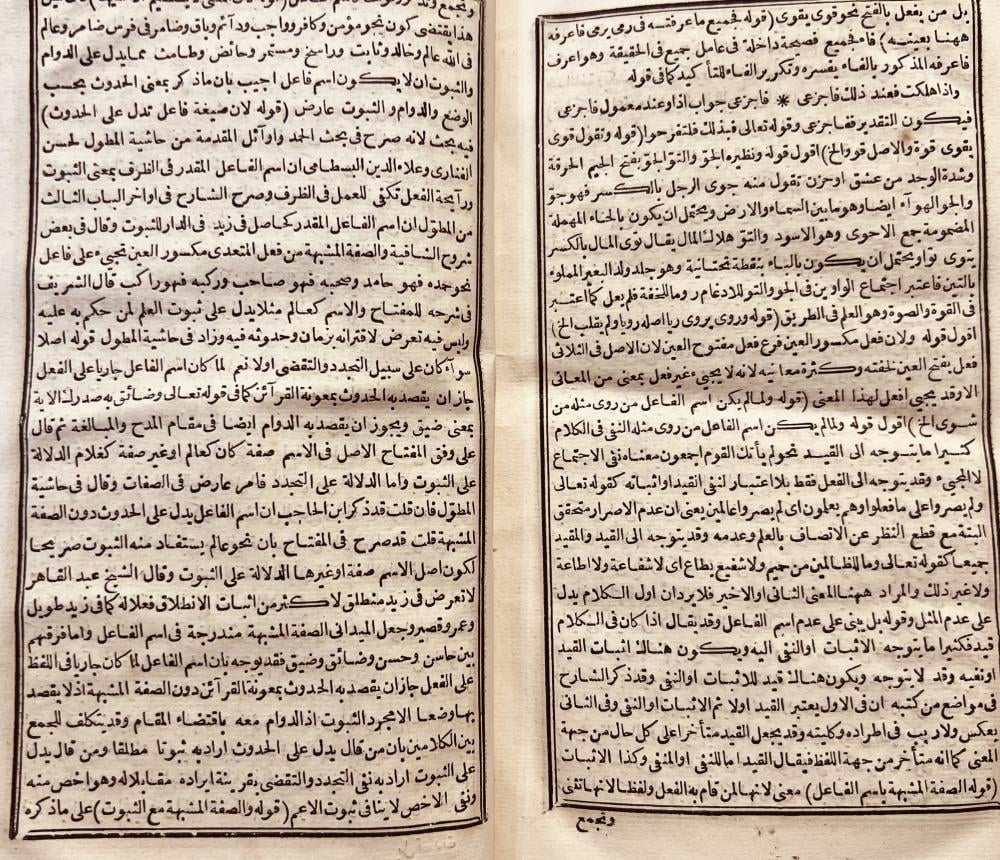 بل من يفعل بالفتح نحو قوى يقوى (قوله فجميع ما عرفته فى رمى يرمى فاعرفه
ههنا بعينه) فاء فجميع فصيحة داخلة فى عامل جميع فى الحقيقة وهو اعرف
فاعرفه المذكور بالفاء يفسره وتكرير الفاء للتأكيد كما فى قوله
واذا هلكت فعند ذلك فاجزعى * فاجزعى جواب اذا وعند معمول فاجزعى
فيكون التقدير فاجزعى وقوله تعالى فبذلك فلتفرحوا (قوله وتقول قوى
يقوى قوة والاصل قووالخ) اقول قوله ونظيره الجو والتو الجو بفتح الجيم الحرقة
وشدة الوجد من عشق او حزن تقول منه جوى الرجل بالكسر فهو جو
والجو الهوآء ايضا وهو ما بين السماء والارض ويحتمل ان يكون بالحاء المهملة
المضمومة جمع الاحوى وهو الاسود والتو هلاك المال يقال توى المال بالكسر
يتوى توا ويحتمل ان يكون بالباء بنقطة تحتانية وهو جلد ولد البعير المملوء
بالتبن فاعتبر اجتماع الواوين فى الجو والتو للادغام روما للخفة فلم يعل كما اعتبر
فى القوة والصوة وهو العلم فى الطريق (قوله وروى يروى ريا اصله رويا ولم يقلب الخ)
اقول قوله ولان فعل مكسور العين فرع فعل مفتوح العين لان الاصل فى الثلاثى
فعل بفتح العين لخفته وكثرة معانيه لانه لا يجيء غير فعل بمعنى من المعانى
الا وقد يجيئ افعل لهذا المعنى (قوله ولما لم يكن اسم الفاعل من روى مثله من
شوى الخ) اقول قوله ولما لم يكن اسم الفاعل من روى مثله النفى فى الكلام
كثيرا ما يتوجه الى القيد نحو لم يأتك القوم اجمعون معناه نفى الاجتماع
لا المجيء وقد يتوجه الى الفعل فقط بلا اعتبار لنفى القيد واثباته كقوله تعالى
ولم يصروا على ما فعلوا وهم يعلمون اى لم يصروا عالمين يعنى ان عدم الاصرار متحقق
البتة مع قطع النظر عن الاتصاف بالعلم وعدمه وقد يتوجه الى القيد والمقيد
جميعا كقوله تعالى وما للظالمين من حميم ولا شفيع يطاع اى لا شفاعة ولا اطاعة
ولا غير ذلك والمراد ههنا المعنى الثانى او الاخير فلا يرد ان اول الكلام يدل
على عدم المثل وقوله بل يبنى على عدم اسم الفاعل وقد يقال اذا كان فى الكلام
قيد فكثيرا ما يتوجه الاثبات او النفى اليه ويكون هناك اثبات القيد
او نفيه وقد لا يتوجه ويكون هناك قيد للاثبات او النفى وقد ذكر الشارح
فى مواضع من كتبه ان فى الاول يعتبر القيد اولا ثم الاثبات او النفى وفى الثانى
يعكس ولا ريب فى اطراده وكليته وقد يجعل القيد متأخرا على كل حال من جهة
المعنى كما انه متأخر من جهة اللفظ فيقال القيد اما للنفى او المنفى وكذا الاثبات
(قوله الصفة المشبهة باسم الفاعل) معنى لانها لمن قام به الفعل ولفظا لانها تثنى
وتجمع
هذا يقتضى كون نحو مؤمن وكافر وواجب ودآئم وباق وضامر فى فرس ضامر وعالم
فى الله عالم وخالد وثابت وراسخ ومستمر وحائض وطامث مما يدل على الدوام
والثبوت ان لا يكون اسم فاعل اجيب بان ما ذكر بمعنى الحدوث بحسب
الوضع والدوام والثبوت عارض (قوله لان صيغة فاعل تدل على الحدوث)
فيه بحث لانه صرح فى بحث الحمد واوآئل المقدمة من حاشية المطول لحسن
الفنارى وعلاء الدين البسطامى ان اسم الفاعل المقدر فى الظرف بمعنى الثبوت
ورآيحة الفعل تكفى للعمل فى الظرف وصرح الشارح فى اواخر الباب الثالث
من المطول ان اسم الفاعل المقدر كحاصل فى زيد فى الدار للثبوت وقال فى بعض
شروح الشافية والصفة المشبهة من فعل المتعدى مكسور العين تجيء على فاعل
نحو حمده فهو حامد وصحبه فهو صاحب وركبه فهو راكب قال الشريف
فى شرحه للمفتاح والاسم كعالم مثلا يدل على ثبوت العلم لمن حكم به عليه
وليس فيه تعرض لاقترانه بزمان وحدوثه فيه وزاد فى حاشية المطول قوله اصلا
سوآء كان على سبيل التجدد والتقضى اولا نعم لما كان اسم الفاعل جاريا على الفعل
جاز ان يقصد به الحدوث بمعونة القرآئن كما فى قوله تعالى وضائق به صدرك الآية
بمعنى ضيق ويجوز ان يقصد به الدوام ايضا فى مقام المدح والمبالغة ثم قال
على وفق المفتاح الاصل فى الاسم صفة كان كعالم او غير صفة كغلام الدلالة
على الثبوت واما الدلالة على التجدد فامر عارض فى الصفات وقال فى حاشية
المطول فان قلت قد ذكر ابن الحاجب ان اسم الفاعل يدل على الحدوث دون الصفة
المشبهة قلت قد صرح فى المفتاح بان نحو عالم يستفاد منه الثبوت صريحا
لكون اصل الاسم صفة او غيرها الدلالة على الثبوت وقال الشيخ عبد القاهر
لا تعرض فى زيد منطلق لاكثر من اثبات الانطلاق فعلا له كما فى زيد طويل
وعمرو قصير وجعل الميدانى الصفة المشبهة مندرجة فى اسم الفاعل واما فرقهم
بين حاسن وحسن وضائق وضيق فقد يوجه بان اسم الفاعل لما كان جاريا فى اللفظ
على الفعل جاز ان يقصد به الحدوث بمعونة القرآئن دون الصفة المشبهة اذ لا يقصد
بها وضعا الا مجرد الثبوت اذ الدوام معه باقتضاء المقام وقد يتكلف للجمع
بين الكلامين بان من قال يدل على الحدوث اراد به ثبوتا مطلقا ومن قال يدل
على الثبوت اراد به نفى التجدد والتقضى بقرينة ايراده مقابلا له وهو اخص منه
ونفى الاخص لا ينافى ثبوت الاعم (قوله والصفة المشبهة مع الثبوت) على ما ذكره